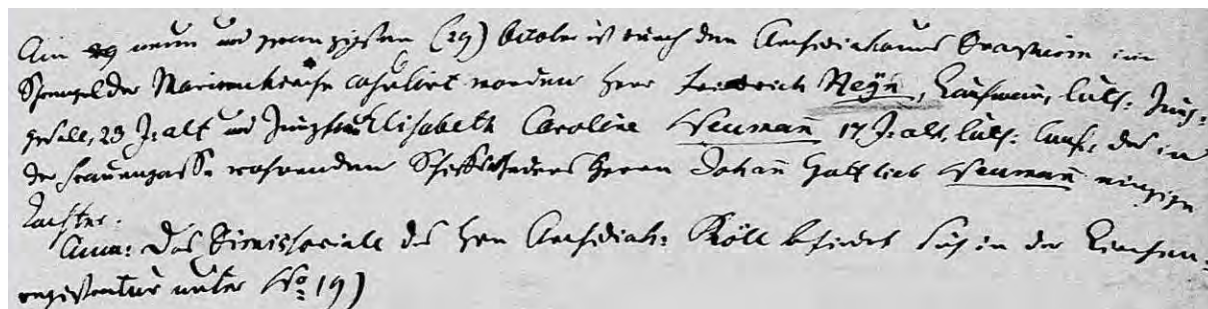 Am neun und zwanzigsten (29) October ist durch den Archidiakonus im
Sprengel der Marienkirche copulirt worden Herr Friedrich Heyn, Kaufmann, luth: Jung-
gesell, 23 J. alt und Jungfrau Elisabeth Caroline Neuman̄ 17 J. alt, luth: Conf. des in
der Frauengasse wohnenden Schiffsrheders Herrn Johan̄ Gottlieb Neuman̄ einzige
Tochter.
Anm: Das Dimissoriale des Hrn Archidiak: Röll befindet sich in der Kirchen-
registratur unter No 19)